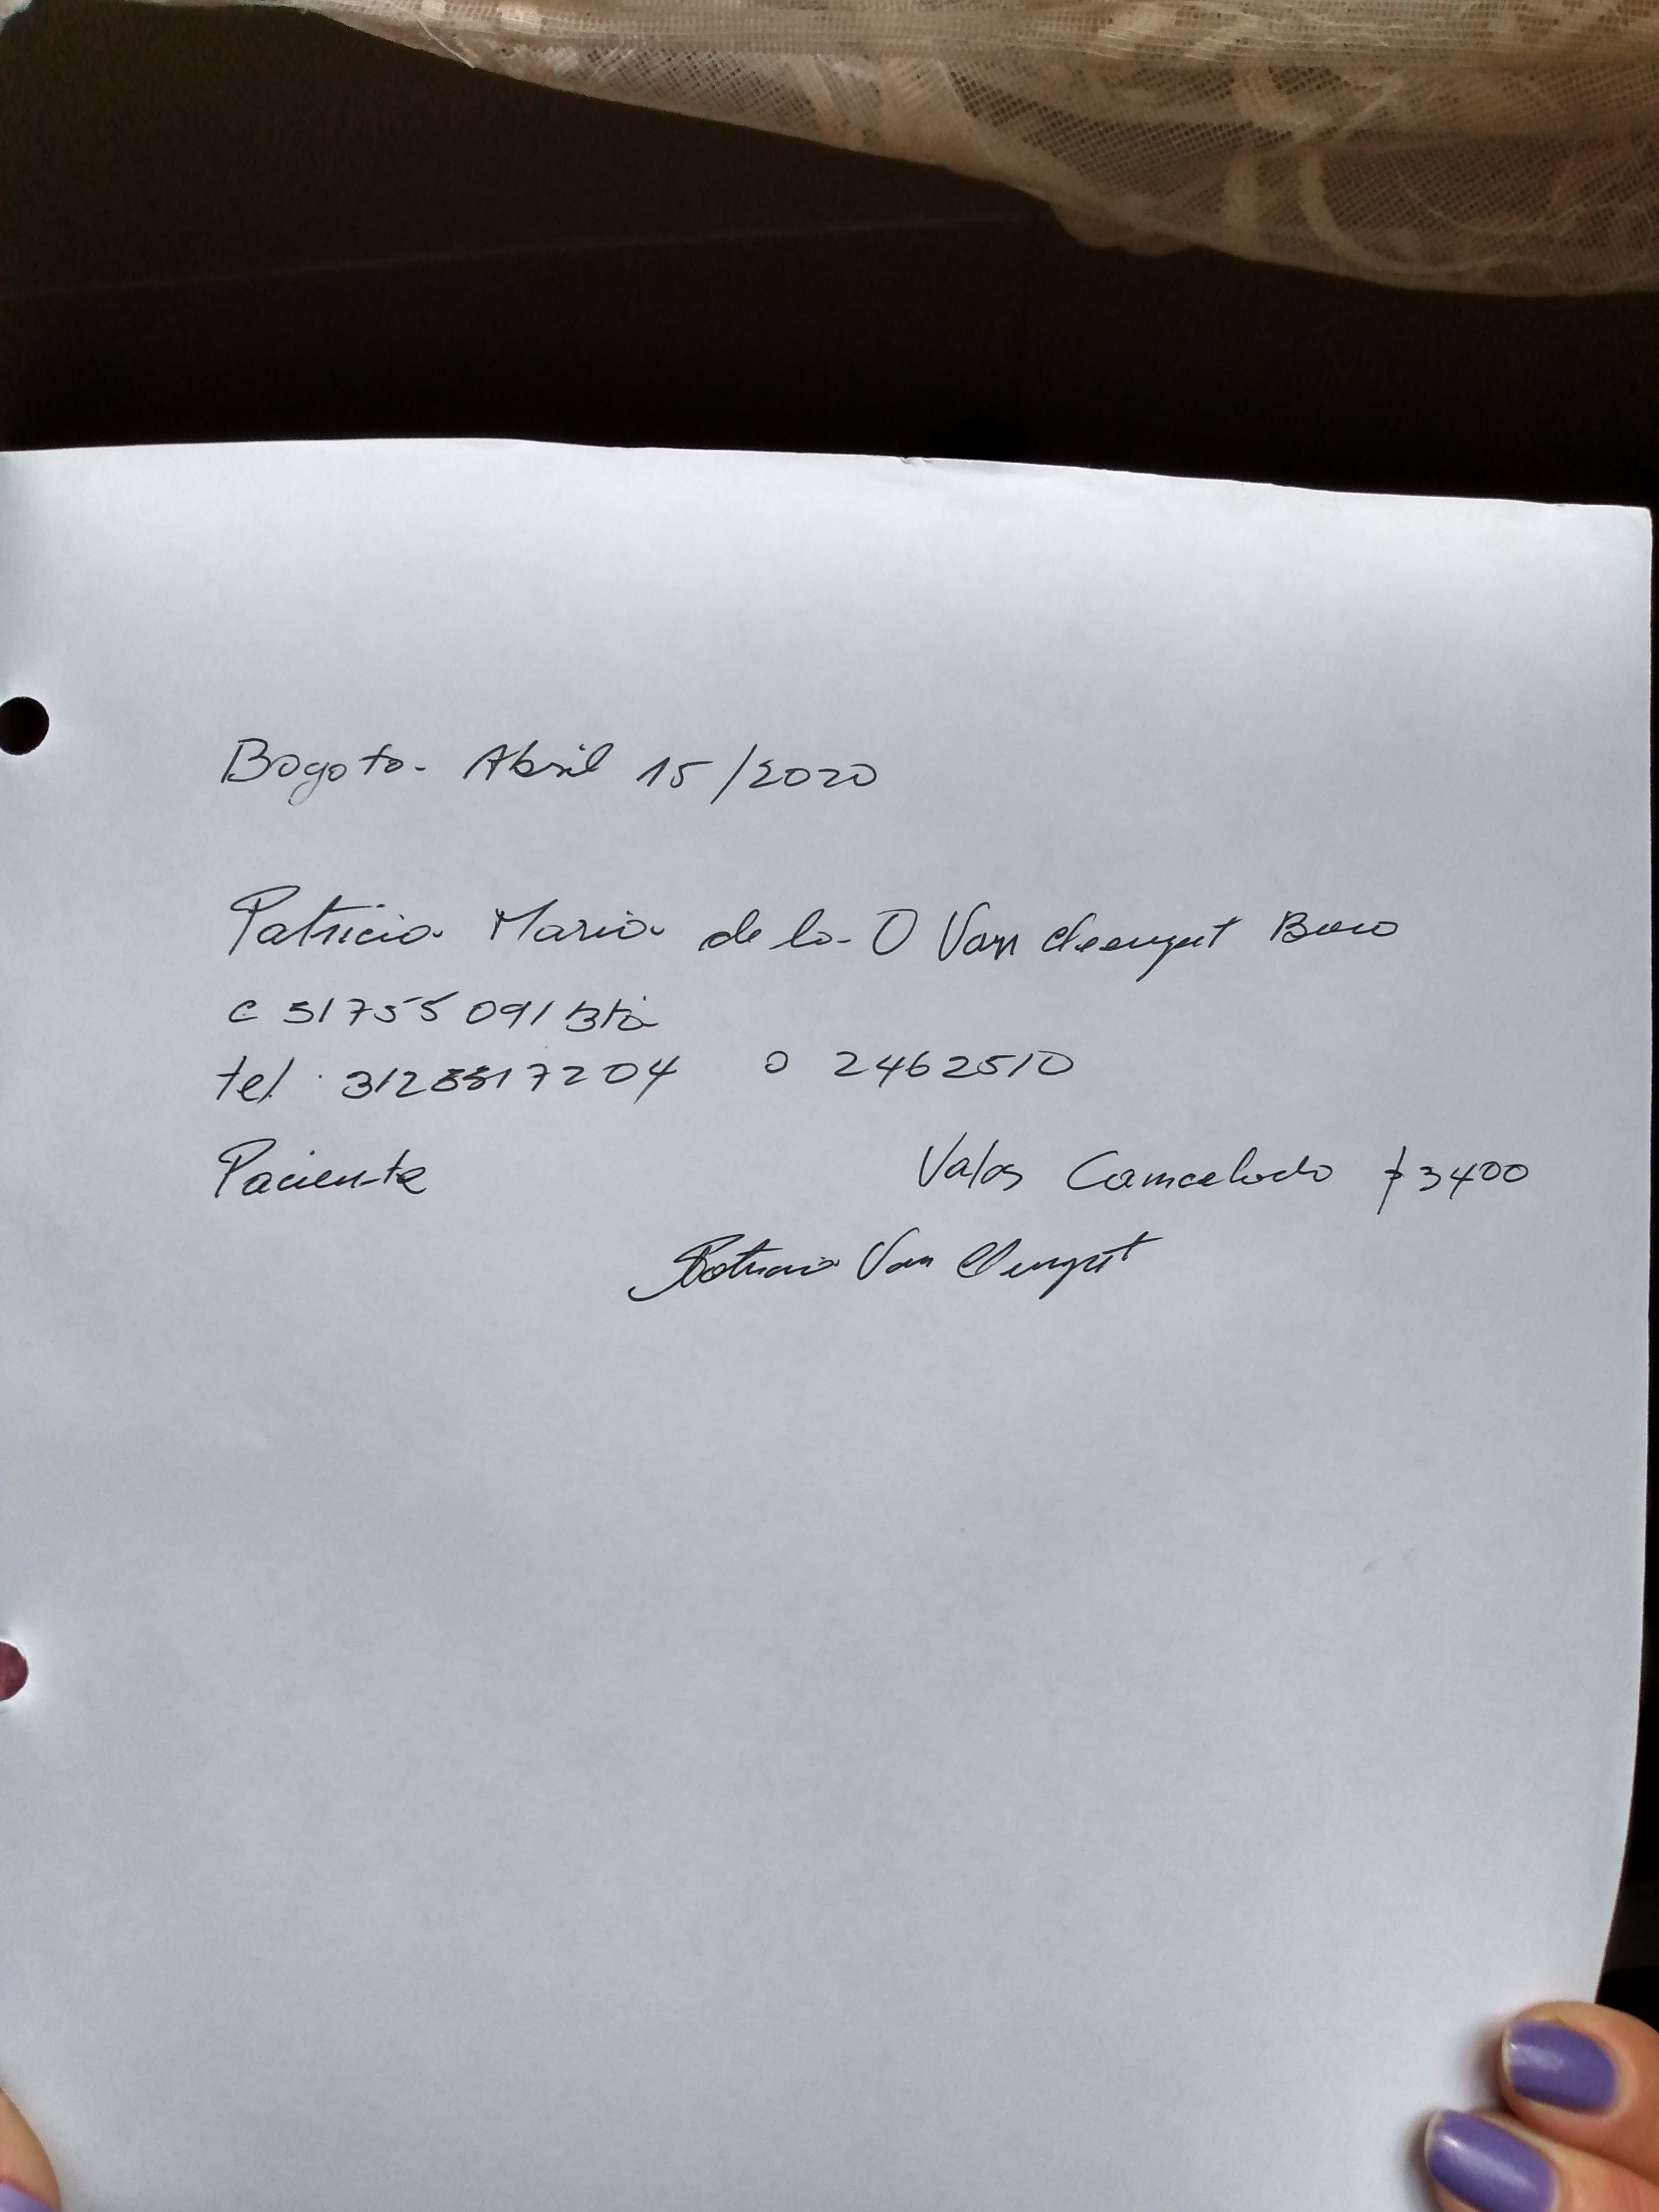 Bogota. Abril 15/2020
Patricia Maria de la O Van Cleenput
c 51755091 Bta
tel. 312 7204 o 2462510
Paciente Valor Cancelado $3400
Patricia Van